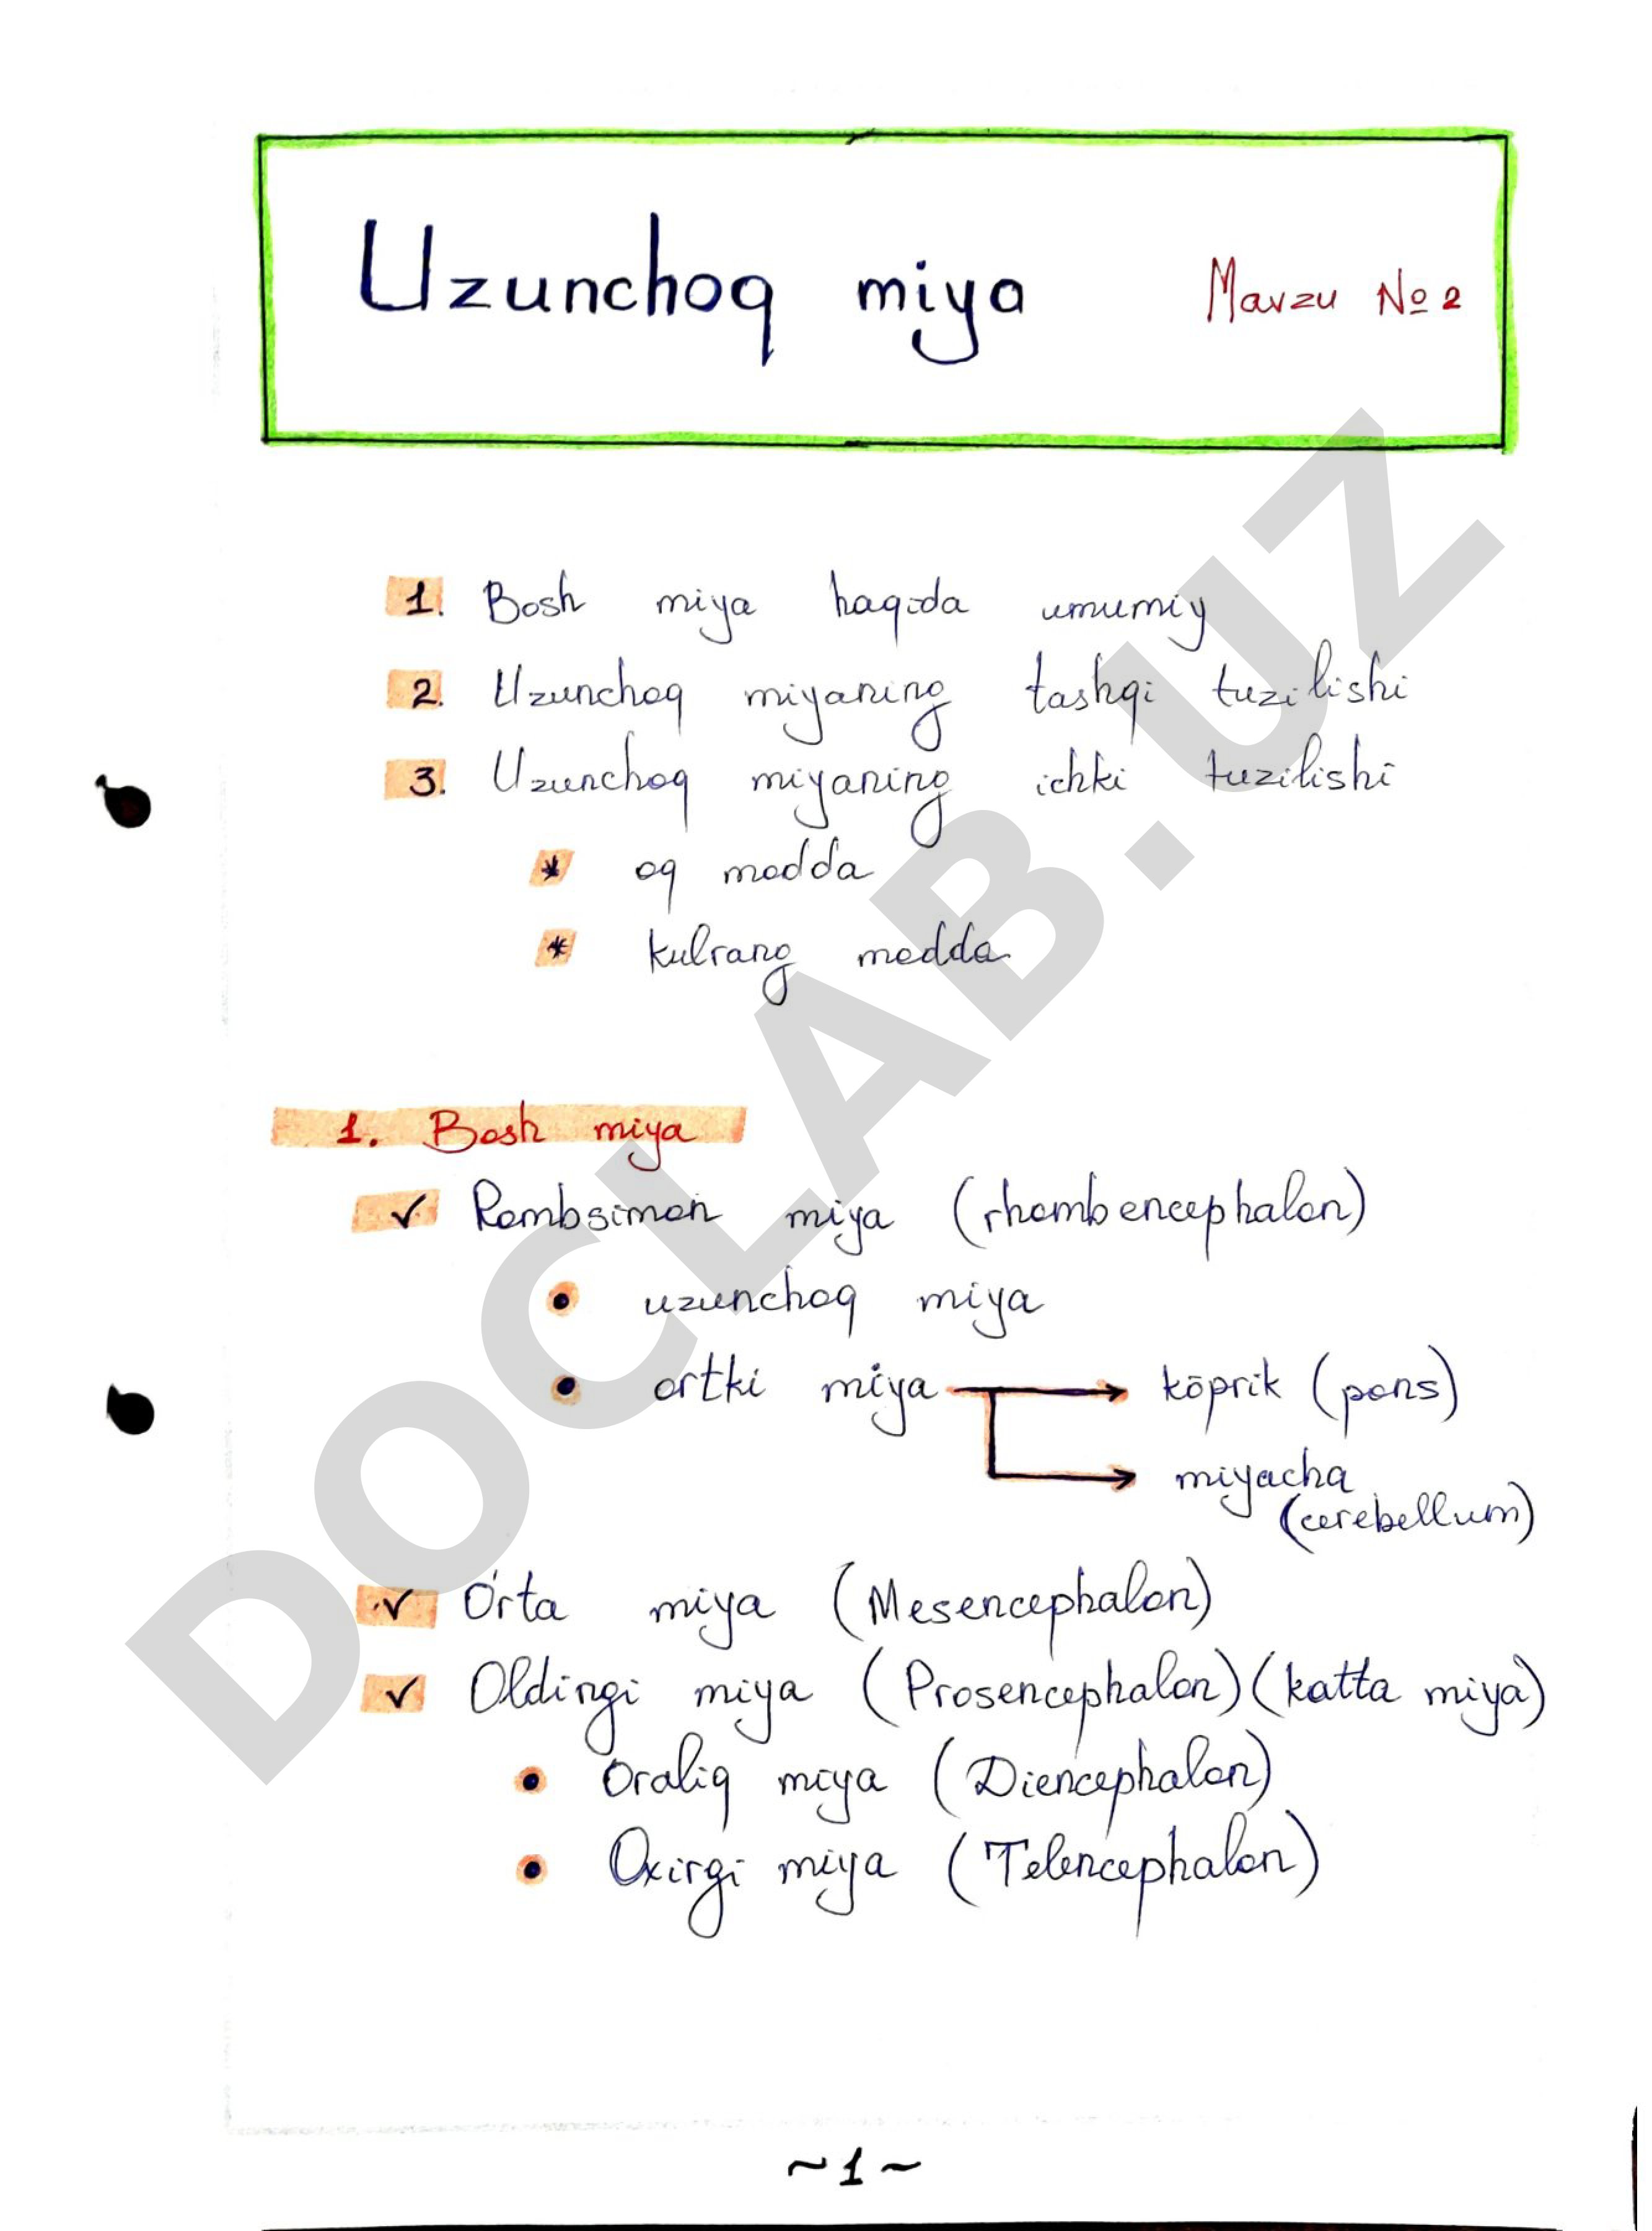 Uzunchoq miya Mavzu № 2
1. Bosh miya haqida umumiy
2. Uzunchoq miyaning tashqi tuzilishi
3. Uzunchoq miyaning ichki tuzilishi
* oq modda
* kulrang modda
1. Bosh miya
✓ Rombsimon miya (rhombencephalon)
• uzunchoq miya
• ortki miya → kōprik (pons)
→ miyacha
(cerebellum)
✓ O'rta miya (Mesencephalon)
✓ Oldingi miya (Prosencephalon) (katta miya)
• Oraliq miya (Diencephalon)
• Oxirgi miya (Telencephalon)
~1~
DOCLAB.UZ